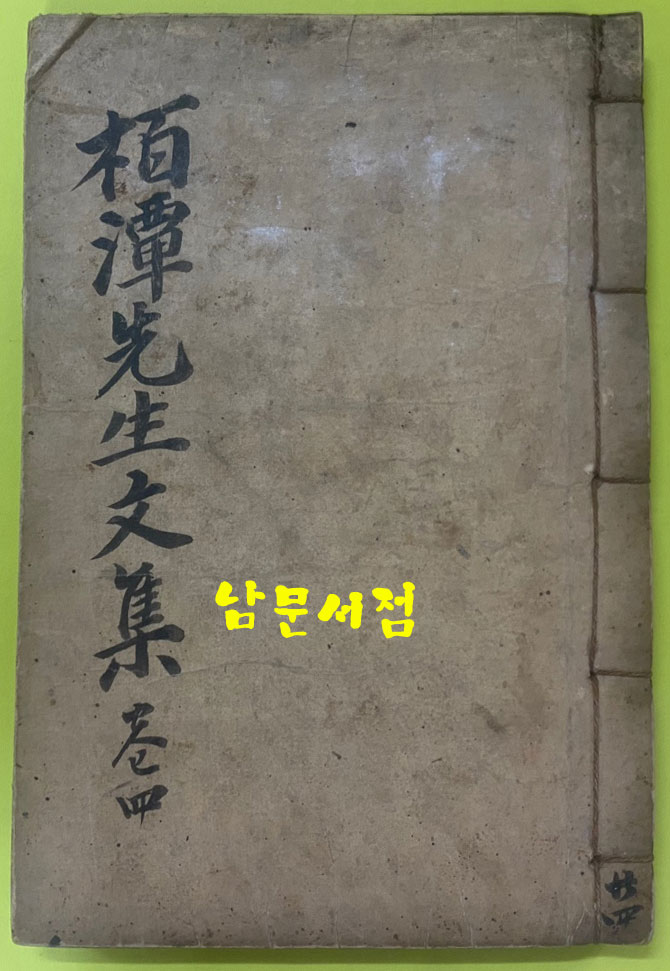 栢潭先生文集 卷四
남문서점
共四